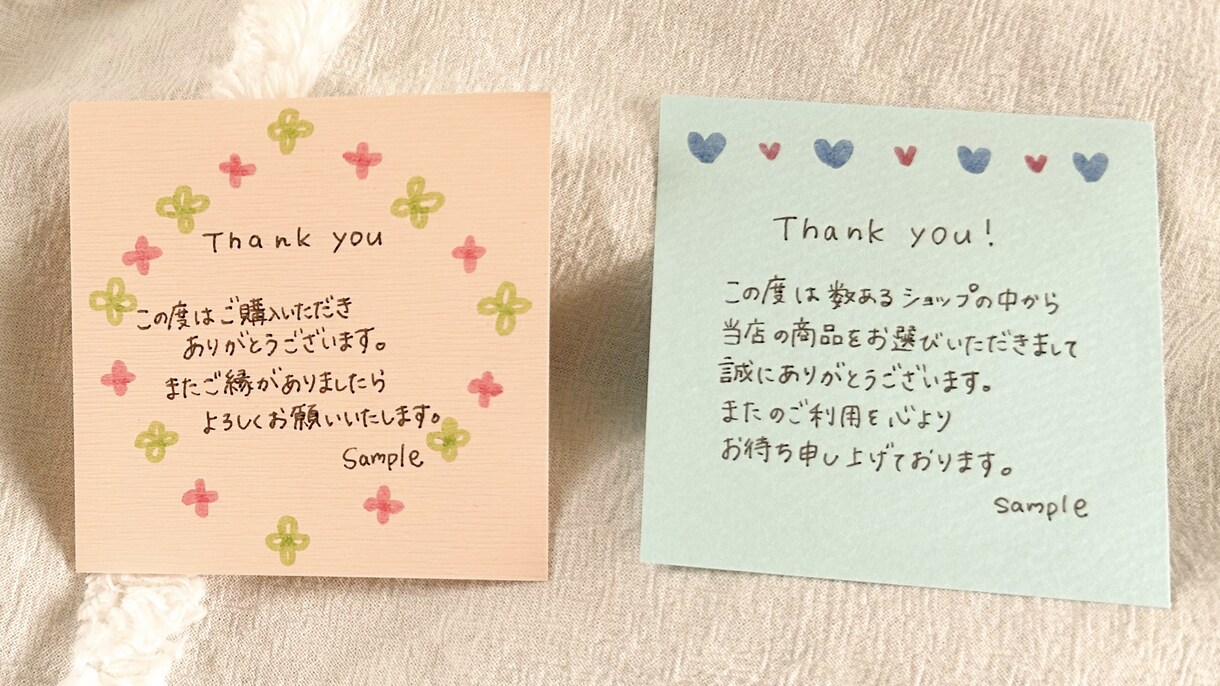 Thank you
この度はご購入いただき
ありがとうございます。
またご縁がありましたら
よろしくお願いいたします。
Sample
Thank you!
この度は数あるショップの中から
当店の商品をお選びいただきまして
誠にありがとうございます。
またのご利用を心より
お待ち申し上げております。
sample